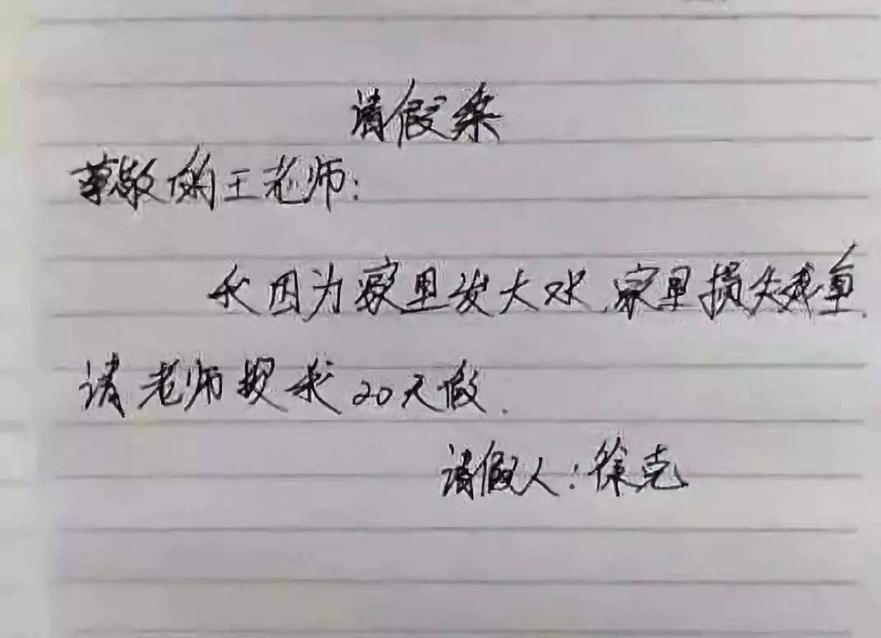 请假条
尊敬的王老师:
我因为家里发大水,家里损失残重.
请老师摆我20天假.
请假人:徐克